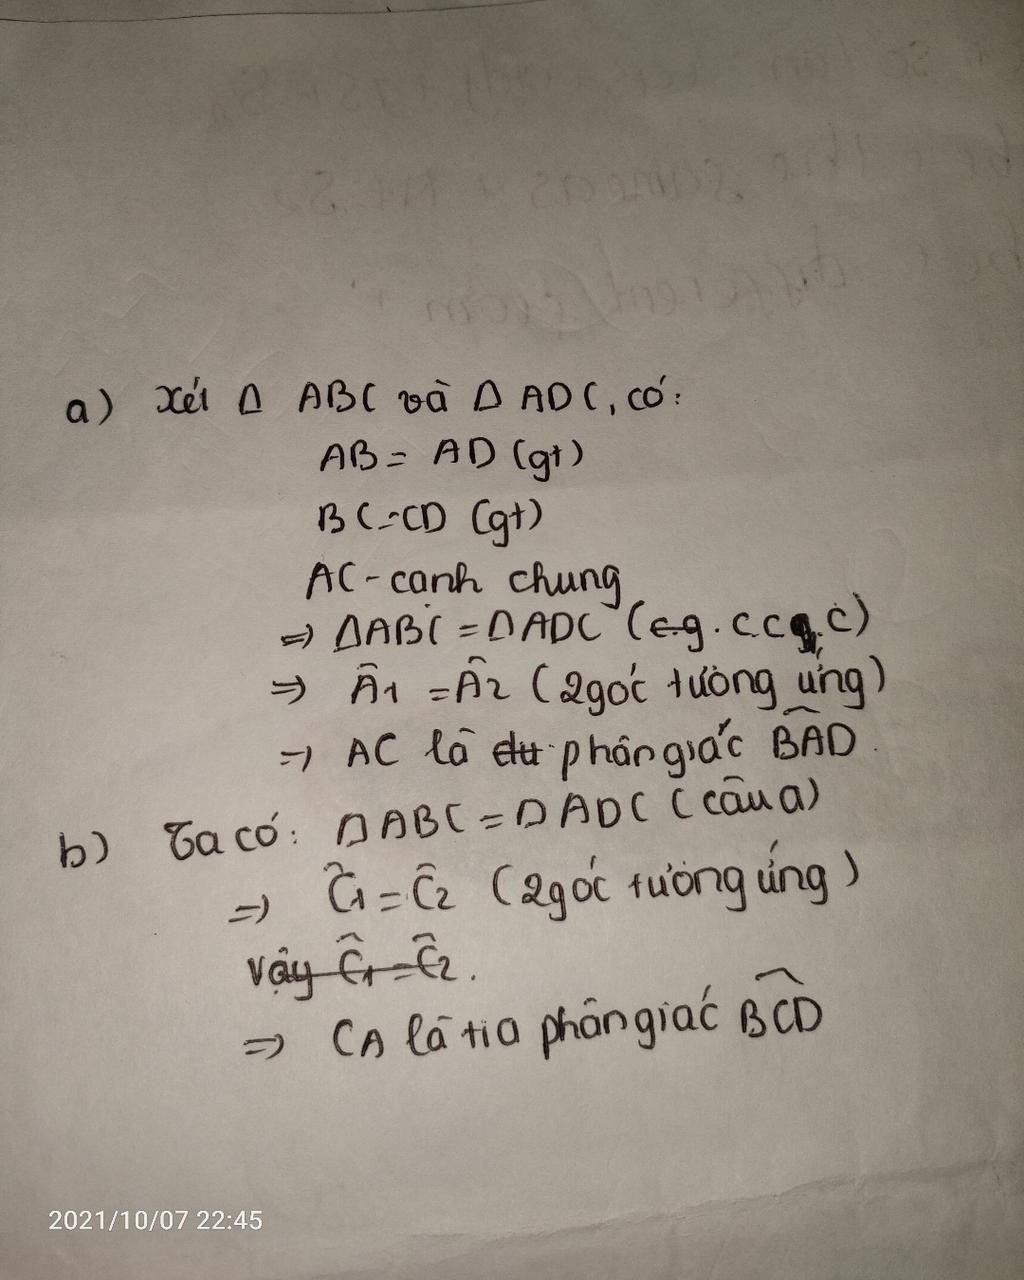 a) Xét Δ ABC và Δ ADC, có:
AB = AD (gt)
BC = CD (gt)
AC - cạnh chung
⇒ ΔABC = ΔADC (c.g.c.c.c)
⇒ Â1 = Â2 (2 góc tương ứng)
⇒ AC là phân giác BÂD.
b) Ta có: ΔABC = ΔADC (câu a)
⇒ Ĉ1 = Ĉ2 (2 góc tương ứng)
Vậy Ĉ1 = Ĉ2.
⇒ CA là tia phân giác BĈD
2021/10/07 22:45